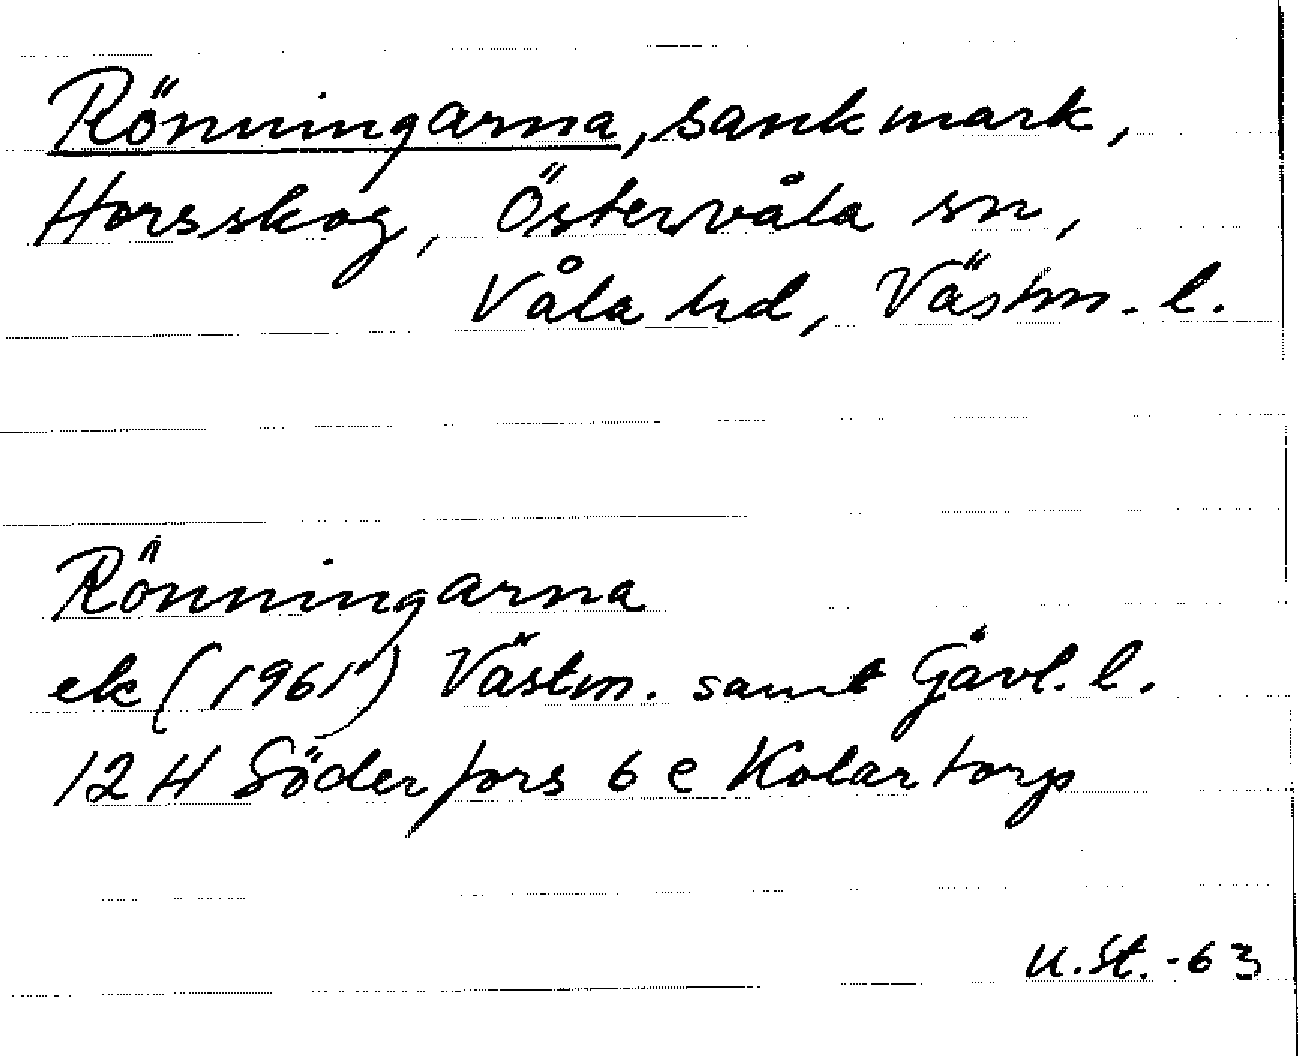 Rönningarna, sankmark,
Horsskog, Östervåla sn,
Våla hd, Västm. l.
Rönningarna
ek (1961) Västm. samt Gävl. l.
12 H Söderfors 6 e Kolartorp
U.St.-63